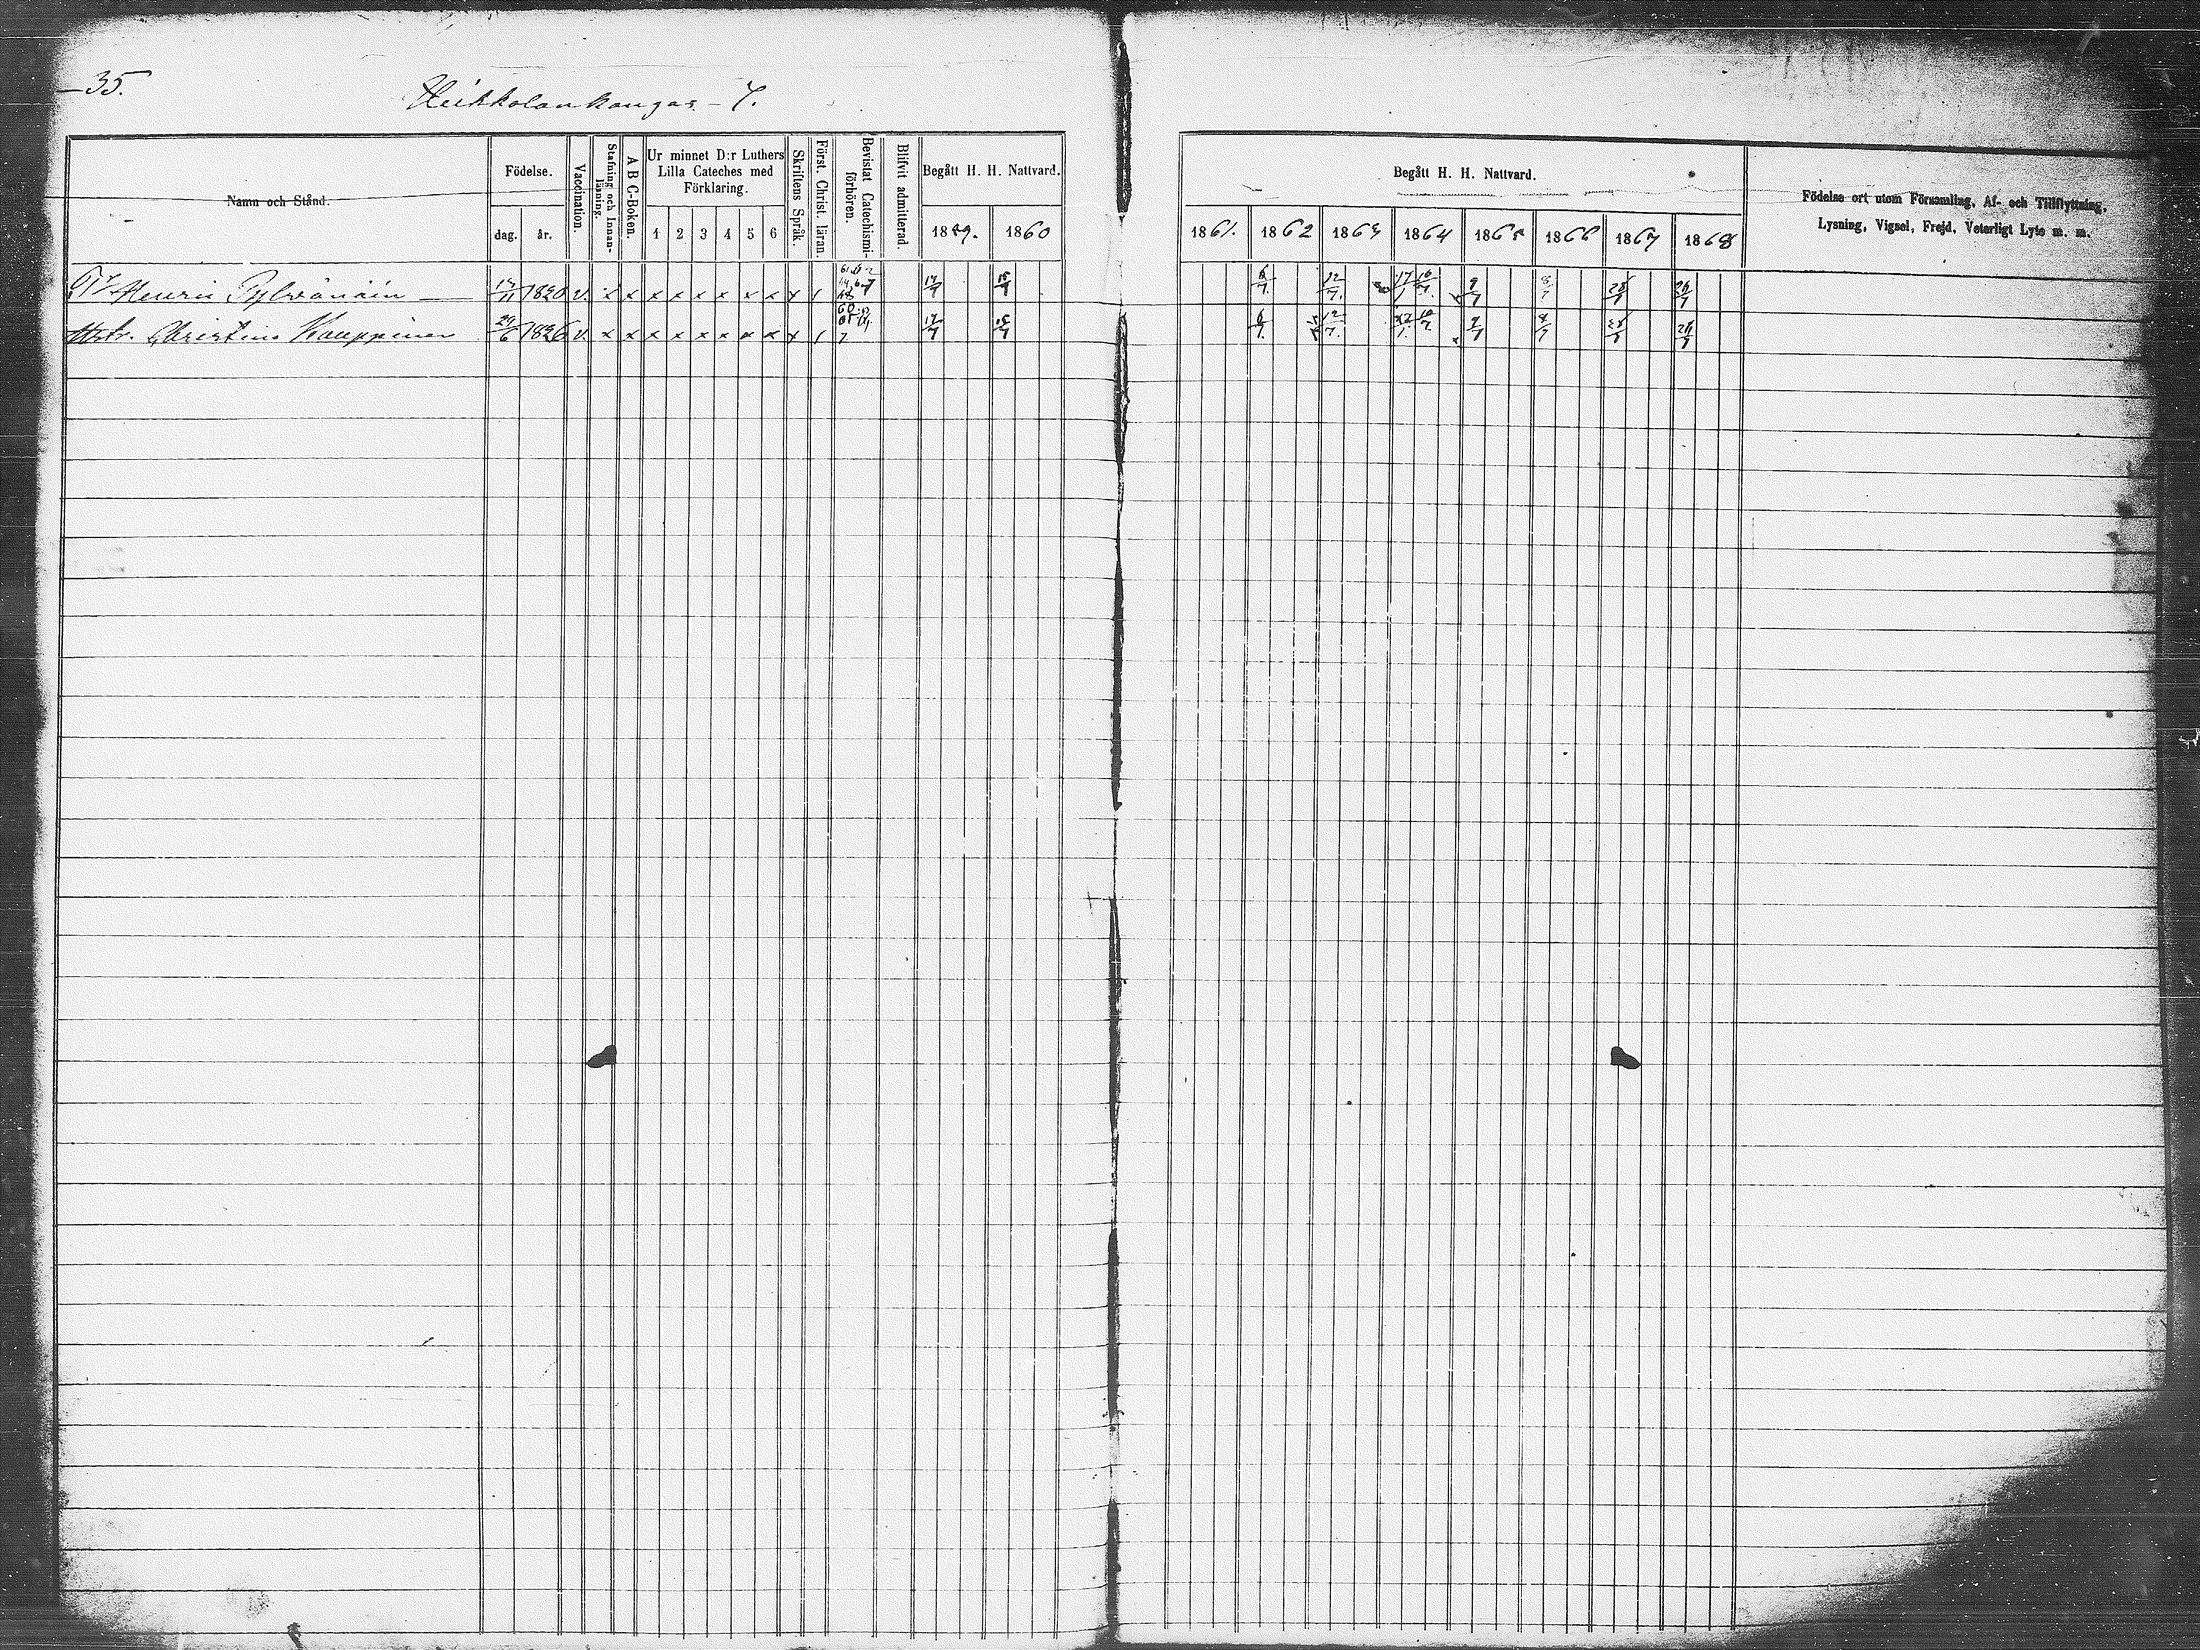 35.
Heikkolankangas - 7.
Namn och Stånd.
Födelse.
dag. år.
Vaccination.
Stafning och Innanläsning.
A B C-Boken.
Ur minnet D:r Luthers
Lilla Cateches med
Förklaring.
1 2 3 4 5 6
Skriftens Språk.
Först. Christ. läran.
Bevistat Catechismi-
förhören.
Blifvit admitterad.
Begått H. H. Nattvard.
1859. 1860
Begått H. H. Nattvard.
1861. 1862 1863 1864 1865 1866 1867 1868
Födelse ort utom Församling, Af- och Tillflyttning,
Lysning, Vigsel, Frejd, Veterligt Lyte m. m.
Henric Pylvänäin 1820 v. x x x x x x x x x 17/7 15/7 6/7. 12/7. 17/1 10/7. 9/7 8/7 28/7 26/7
Hstr. Christina Kauppinen 29/6 1826 v. x x x x x x x x x 17/7 15/7 6/7. 12/7. 10/7. 9/7 8/7 28/7 26/7